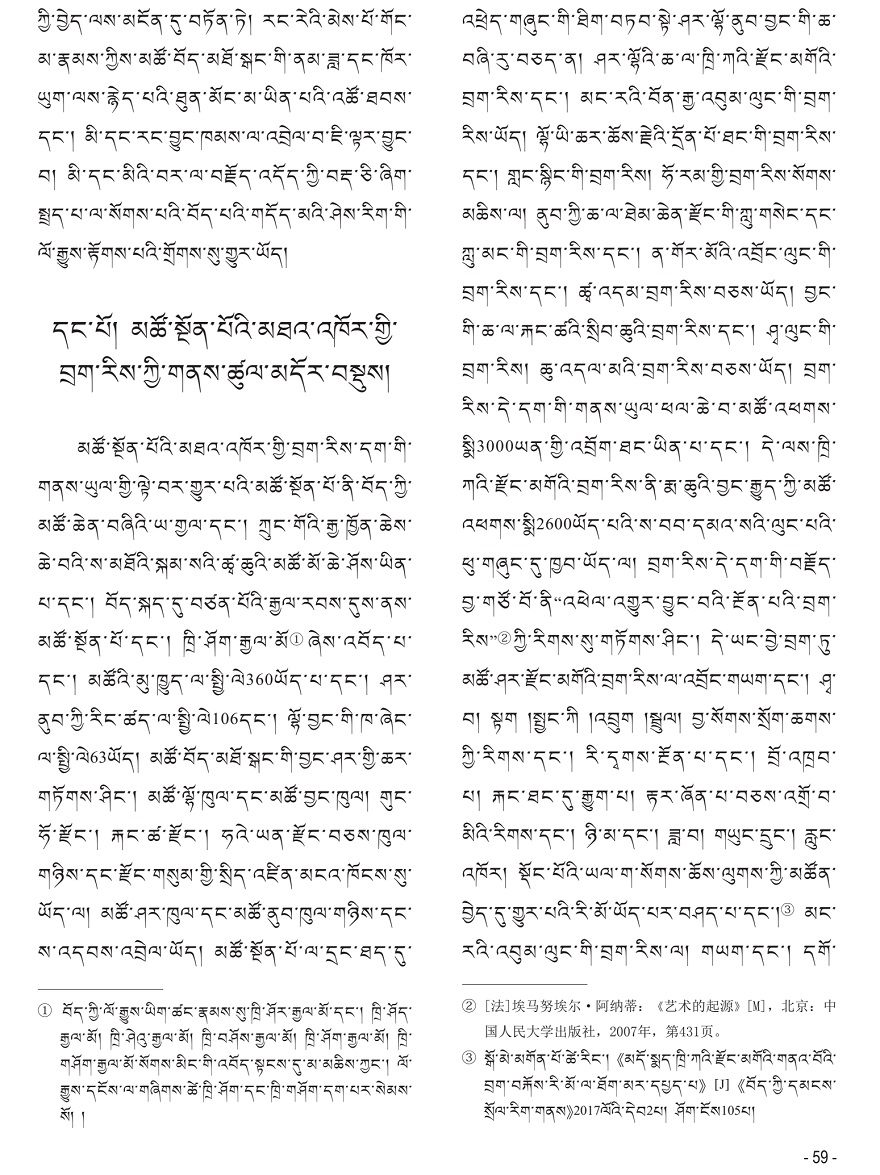 ཀྱི་བྱེད་ལས་མངོན་དུ་བཏོན་ཏེ། རང་རེའི་མེས་པོ་གོང་
མ་རྣམས་ཀྱིས་མཚོ་བོད་མཐོ་སྒང་གི་ནམ་ཟླ་དང་ཁོར་
ཡུག་ལས་རྙེད་པའི་ཐུན་མོང་མ་ཡིན་པའི་འཚོ་ཐབས་
དང་། མི་དང་རང་བྱུང་ཁམས་ལ་འབྲེལ་བ་ཇི་ལྟར་བྱུང་
བ། མི་དང་མིའི་བར་ལ་བརྗོད་འདོད་ཀྱི་བརྡ་ཅི་ཞིག་
སྤྲད་པ་ལ་སོགས་པའི་བོད་པའི་གདོད་མའི་ཤེས་རིག་གི་
ལོ་རྒྱུས་རྟོགས་པའི་གྲོགས་སུ་གྱུར་ཡོད།
དང་པོ། མཚོ་སྔོན་པོའི་མཐའ་འཁོར་གྱི་
བྲག་རིས་ཀྱི་གནས་ཚུལ་མདོར་བསྡུས།
མཚོ་སྔོན་པོའི་མཐའ་འཁོར་གྱི་བྲག་རིས་དག་གི་
གནས་ཡུལ་གྱི་ལྟེ་བར་གྱུར་པའི་མཚོ་སྔོན་པོ་ནི་བོད་ཀྱི་
མཚོ་ཆེན་བཞིའི་ཡ་གྱལ་དང་། ཀྲུང་གོའི་རྒྱ་ཁྱོན་ཆེས་
ཆེ་བའི་ས་མཐོའི་སྐམ་སའི་ཚྭ་ཆུའི་མཚོ་མོ་ཆེ་ཤོས་ཡིན་
པ་དང་། བོད་སྐད་དུ་བཙན་པོའི་རྒྱལ་རབས་དུས་ནས་
མཚོ་སྔོན་པོ་དང་། ཁྲི་ཤོག་རྒྱལ་མོ① ཞེས་འབོད་པ་
དང་། མཚོའི་མུ་ཁྱུད་ལ་སྤྱི་ལེ360ཡོད་པ་དང་། ཤར་
ནུབ་ཀྱི་རིང་ཚད་ལ་སྤྱི་ལེ106དང་། ལྷོ་བྱང་གི་ཁ་ཞེང་
ལ་སྤྱི་ལེ63ཡོད། མཚོ་བོད་མཐོ་སྒང་གི་བྱང་ཤར་གྱི་ཆར་
གཏོགས་ཤིང་། མཚོ་ལྷོ་ཁུལ་དང་མཚོ་བྱང་ཁུལ། གུང་
ཧོ་རྫོང་། རྐང་ཚ་རྫོང་། ཧའེ་ཡན་རྫོང་བཅས་ཁུལ་
གཉིས་དང་རྫོང་གསུམ་གྱི་སྲིད་འཛིན་མངའ་ཁོངས་སུ་
ཡོད་ལ། མཚོ་ཤར་ཁུལ་དང་མཚོ་ནུབ་ཁུལ་གཉིས་དང་
ས་འདབས་འབྲེལ་ཡོད། མཚོ་སྔོན་པོ་ལ་དྲང་ཐད་དུ་
① བོད་ཀྱི་ལོ་རྒྱུས་ཡིག་ཚང་རྣམས་སུ་ཁྲི་ཤོར་རྒྱལ་མོ་དང་། ཁྲི་ཤོད་
རྒྱལ་མོ། ཁྲི་ཤེའུ་རྒྱལ་མོ། ཁྲི་བཤོས་རྒྱལ་མོ། ཁྲི་ཤོག་རྒྱལ་མོ། ཁྲི་
གཤོག་རྒྱལ་མོ་སོགས་མིང་གི་འབོད་སྟངས་དུ་མ་མཆིས་ཀྱང་། ལོ་
རྒྱུས་དངོས་ལ་གཞིགས་ཚེ་ཁྲི་ཤོག་དང་ཁྲི་གཤོག་དག་པར་སེམས་
སོ། །
འཕྲེད་གཞུང་གི་ཐིག་བཏབ་སྟེ་ཤར་ལྷོ་ནུབ་བྱང་གི་ཆ་
བཞི་རུ་བཅད་ན། ཤར་ལྷོའི་ཆ་ལ་ཁྲི་ཀའི་རྫོང་མགོའི་
བྲག་རིས་དང་། མང་རའི་བོན་རྒྱ་འབུམ་ལུང་གི་བྲག་
རིས་ཡོད། ལྷོ་ཡི་ཆར་ཆོས་རྗེའི་དྲོན་པོ་ཐང་གི་བྲག་རིས་
དང་། གླང་སྙིང་གི་བྲག་རིས། ཧོ་རམ་གྱི་བྲག་རིས་སོགས་
མཆིས་ལ། ནུབ་ཀྱི་ཆ་ལ་ཐེམ་ཆེན་རྫོང་གི་ཀླུ་གསེང་དང་
ཀླུ་མང་གི་བྲག་རིས་དང་། ན་གོར་མོའི་འབྲོང་ལུང་གི་
བྲག་རིས་དང་། ཚྭ་འདམ་བྲག་རིས་བཅས་ཡོད། བྱང་
གི་ཆ་ལ་རྐང་ཚའི་སྲིབ་ཆུའི་བྲག་རིས་དང་། ཤྭ་ལུང་གི་
བྲག་རིས། ཆུ་འདལ་མའི་བྲག་རིས་བཅས་ཡོད། བྲག་
རིས་དེ་དག་གི་གནས་ཡུལ་ཕལ་ཆེ་བ་མཚོ་འཕགས་
སྨི3000ཡན་གྱི་འབྲོག་ཐང་ཡིན་པ་དང་། དེ་ལས་ཁྲི་
ཀའི་རྫོང་མགོའི་བྲག་རིས་ནི་རྨ་ཆུའི་བྱང་རྒྱུད་ཀྱི་མཚོ་
འཕགས་སྨི2600ཡོད་པའི་ས་བབ་དམའ་སའི་ལུང་པའི་
ཕུ་གཞུང་དུ་ཁྱབ་ཡོད་ལ། བྲག་རིས་དེ་དག་གི་བརྗོད་
བྱ་གཙོ་བོ་ནི“འཕེལ་འགྱུར་བྱུང་བའི་རྔོན་པའི་བྲག་
རིས”②ཀྱི་རིགས་སུ་གཏོགས་ཤིང་། དེ་ཡང་བྱེ་བྲག་ཏུ་
མཚོ་ཤར་རྫོང་མགོའི་བྲག་རིས་ལ་འབྲོང་གཡག་དང་། ཤྭ་
བ། སྟག །སྤྱང་ཀི །འབྲུག །སྦྲུལ། བྱ་སོགས་སྲོག་ཆགས་
ཀྱི་རིགས་དང་། རི་དྭགས་རྔོན་པ་དང་། བྲོ་འཁྲབ་
པ། རྐང་ཐང་དུ་རྒྱུག་པ། རྟར་ཞོན་པ་བཅས་འགྲོ་བ་
མིའི་རིགས་དང་། ཉི་མ་དང་། ཟླ་བ། གཡུང་དྲུང་། རླུང་
འཁོར། སྡོང་པོའི་ཡལ་ག་སོགས་ཆོས་ལུགས་ཀྱི་མཚོན་
བྱེད་དུ་གྱུར་པའི་རི་མོ་ཡོད་པར་བཤད་པ་དང་།③ མང་
རའི་འབུམ་ལུང་གི་བྲག་རིས་ལ། གཡག་དང་། དགོ་
② [法]埃马努埃尔·阿纳蒂：《艺术的起源》[M]，北京：中
国人民大学出版社，2007年，第431页。
③ སྒོ་མེ་མགོན་པོ་ཚེ་རིང་།《མདོ་སྨད་ཁྲི་ཀའི་རྫོང་མགོའི་གནའ་བོའི་
བྲག་བརྐོས་རི་མོ་ལ་ཐོག་མར་དཔྱད་པ》[J]《བོད་ཀྱི་དམངས་
སྲོལ་རིག་གནས》2017ལོའི་དེབ2པ། ཤོག་ངོས105པ།
- 59 -